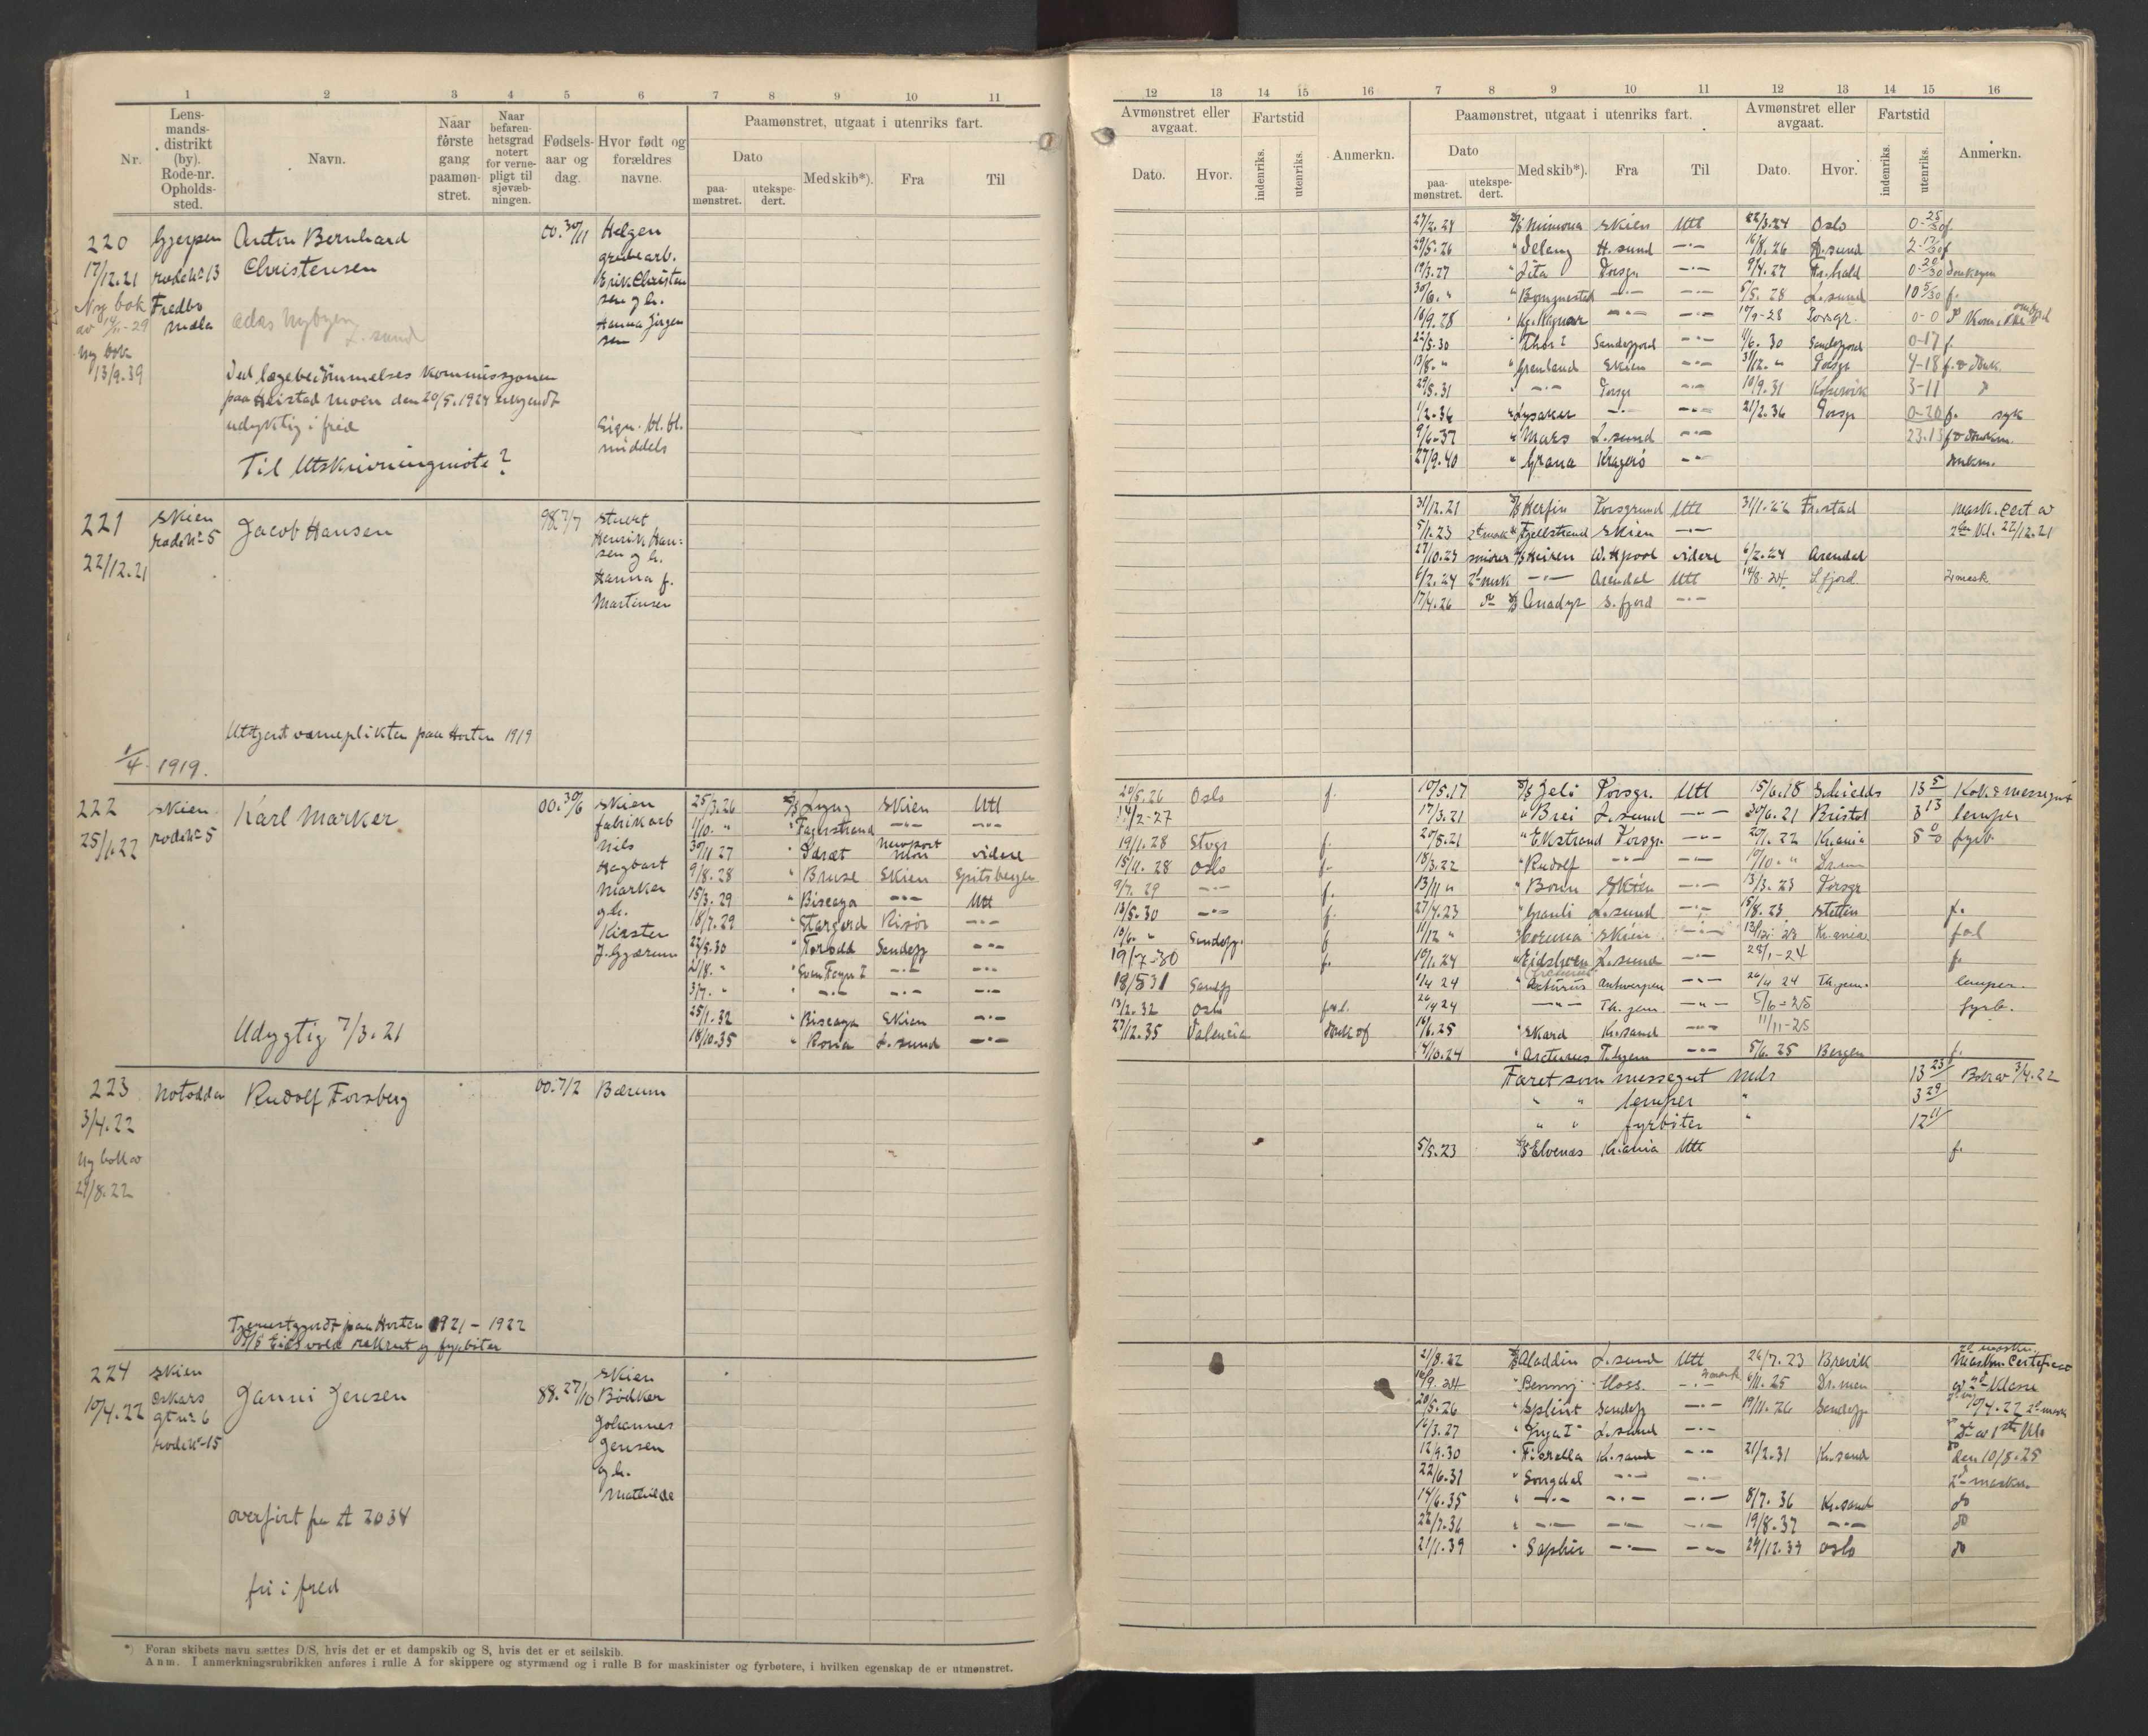 1 2 3 4 5 6 7 8 9 10 11
Nr.
Lens-
mands-
distrikt
(by).
Rode-nr.
Opholds-
sted.
Navn.
Naar
første
gang
paamøn-
stret.
Naar
befaren-
hetsgrad
notert
for verne-
pligt til
sjøvæb-
ningen.
Fødsels-
aar og
dag.
Hvor født og
forældres
navne.
Paamønstret, utgaat i utenriks fart.
Dato
paa-
mønstret.
utekspe-
dert.
Med skib*).
Fra
Til
220
17/12.21
Ny bok
av 14/11-29
Ny bok
13/9.39
Gjerpen
rode No 13
Fredbo
Mæla
Anton Bernhard
Christensen
L. sund
paa Heistad moen den 20/5.1924
udyktig i fred
Til Utskrivningmøte?
00.30/11
Helgen
grubearb.
Erik Christen
sen g h.
Hanna Jørgen
sen
Sign. bl. bl.
middels
221
22/12.21
Skien
rode No 5
Jacob Hansen
98.7/7
Henrik Han-
sen g h.
Hanna f.
Martinsen
Uttjent værneplikten paa Horten 1919
1/4 1919.
222
25/1.22
Skien
rode No 5
Karl Marker
Udygtig 7/3.21
00.30/6
Skien
fabrikarb
Nils
Hagbart
Marker
g h.
Kirsten
J. Gjærum
25/3.26 D/S Lyng Skien Utl
1/10. " " Fagerstrand -"- -"-
30/11 27 " Idræt Newport Mon videre
9/8.28 " Bruse Skien Spitsbergen
15/3.29 " Biscaya -"- Utl
18/7.29 " Stargard Risør -"-
22/5.30 " Torodd Sandefj -"-
2/8. " " Sven Foyn I -"- -"-
3/7. " " -"- -"- -"-
25/1.32 " Biscaya Skien -"-
18/10.35 " Rona L.sund -"-
223
3/4.22
Ny bok av
29/8.22
Notodden
Rudolf Forsberg
00.7/2
Bærum
Tjenestgjordt paa Horten 1921 - 1922
P/S Eidsvold rekrut og fyrbøter
224
10/4.22
Skien
Oskars
gt No 6
rode No 15
Janni Jensen
overført fra A 2034
fri i fred
88.27/10
Skien
Bødker
Johannes
Jensen
g h.
Mathilde
*) Foran skibets navn sættes D/S, hvis det er et dampskib og S, hvis det er et seilskib.
Anm. I anmerkningsrubrikken anføres i rulle A for skippere og styrmænd og i rulle B for maskinister og fyrbøtere, i hvilken egenskap de er utmønstret.
12 13 14 15 16 7 8 9 10 11 12 13 14 15 16
Avmønstret eller
avgaat.
Dato.
Hvor.
Fartstid
indenriks.
utenriks.
Anmerkn.
Paamønstret, utgaat i utenriks fart.
Dato
paa-
mønstret.
utekspe-
dert.
Med skib*).
Fra
Til
Avmønstret eller
avgaat.
Dato.
Hvor.
Fartstid
indenriks.
utenriks.
Anmerkn.
27/2.24 D/S Mimona Skien Utl 22/3.24 Oslo 0-25/30 f
29/5.26 " H.sund -"- 16/8.26 2-17/30 f
19/3.27 " Lita Porsgr -"- 9/4.27 Fr.hald 0-20/30
30/6. " " -"- -"- 5/5.28 L.sund 10 5/30 f.
16/9.28 -"- -"- 10/9-28 Porsgr. 0-0
22/5.30 " Thor I Sandefjord -"- 11/6.30 Sandefjord 0-17 f
13/8. " " Grenland Skien -"- 31/12. " Porsgr 4-18
29/5.31 " -"- Porsgr -"- 10/9.31 Kopervik 3-11
1/2.36 " Lysaker -"- -"- 21/2.36 Porsgr 0-20 f. syk
9/6.37 " Mars L.sund -"- 23.13
27/9.40 " Grana Kragerø -"- donkm.
31/12.21 D/S Kerfin Porsgrund Utl 31/1.22 Fr.stad Mask. Cert av
5/1.23 Fjellstrand Skien -"- 2den Kl. 22/12.21
27/10.23 D/S Heiren W.Hpool videre 6/2.24 Arendal
6/2.24 2' mask -"- Arendal Utl 14/8.24 S.fjord 2 mask
17/4.26 do D/S Anadyr S.fjord -"-
20/5.26 Oslo f. 10/5.17 D/S Jelø Porsgr. Utl 15/6.18 Schields 13 5 Kok & messegut
14/2-27 17/3.21 " Brei L.sund -"- 30/6.21 Bristol 3 13 lemper
19/1.28 Stvgr f. 20/8.21 " Ekstrand Porsgr. -"- 20/1.22 Kr.ania 5 0/0 fyrb.
15/11.28 Oslo f. 18/3.22 " Rudolf -"- -"- 10/10. " Dr.m
9/7.29 -"- f. 13/11 " " Bonn Skien -"- 13/3.23 Porsgr
13/5.30 -"- f. 27/4.23 " Granli L.sund -"- 15/8.23 Stettin f.
13/6. " Sandefj. f 11/12 " " Corunna Skien -"- 13/12.23 Kr.ania fol
19/7-30 f. 10/1.24 " Eidshorn L.sund -"- 28/1-24 f.
18/5 31 Sandfj 1/4 24 " Arcturus Antwerpen -"- 26/4 24 Th.jem. lemper.
13/2.32 Oslo 26/4 24 -"- Th.jem -"- 5/6-25 fyrb.
27/12.35 Valencia 16/6.25 " Skard Kr.sand -"- 11/11-25
14/10.24 " Arcturus T.hjem -"- 5/6.25 Bergen f.
Faret som messegut Mdr 13 23 Bok av 3/4.22
" " lemper " 3 29
" " fyrbøter " 12 11
5/5.23 D/S Elvenes Kr.ania Utl f.
21/8.22 D/S Aladdin L.sund Utl 26/7.23 Brevik Maskin Certificat
16/9.24 " Benny Moss. -"- 2 mask 6/11.25 Dr.men
20/5.26 " Splint Sandefj -"- 19/11.26 Sandefj. 10/4.22 2' mask
14/3.27 " Inga I L.sund -"-
12/9.30 " Fiorella Kr.sand -"- 21/2.31 Kr.sand den 10/8.25
22/6.31 " Songdal -"- -"- 2' maskn.
14/6.35 " -"- -"- -"- 8/7.36 Kr.sand do
22/7.36 " -"- -"- -"- 19/8.37 -"- do
21/1.39 " Saphir -"- -"- 29/12.39 Oslo do